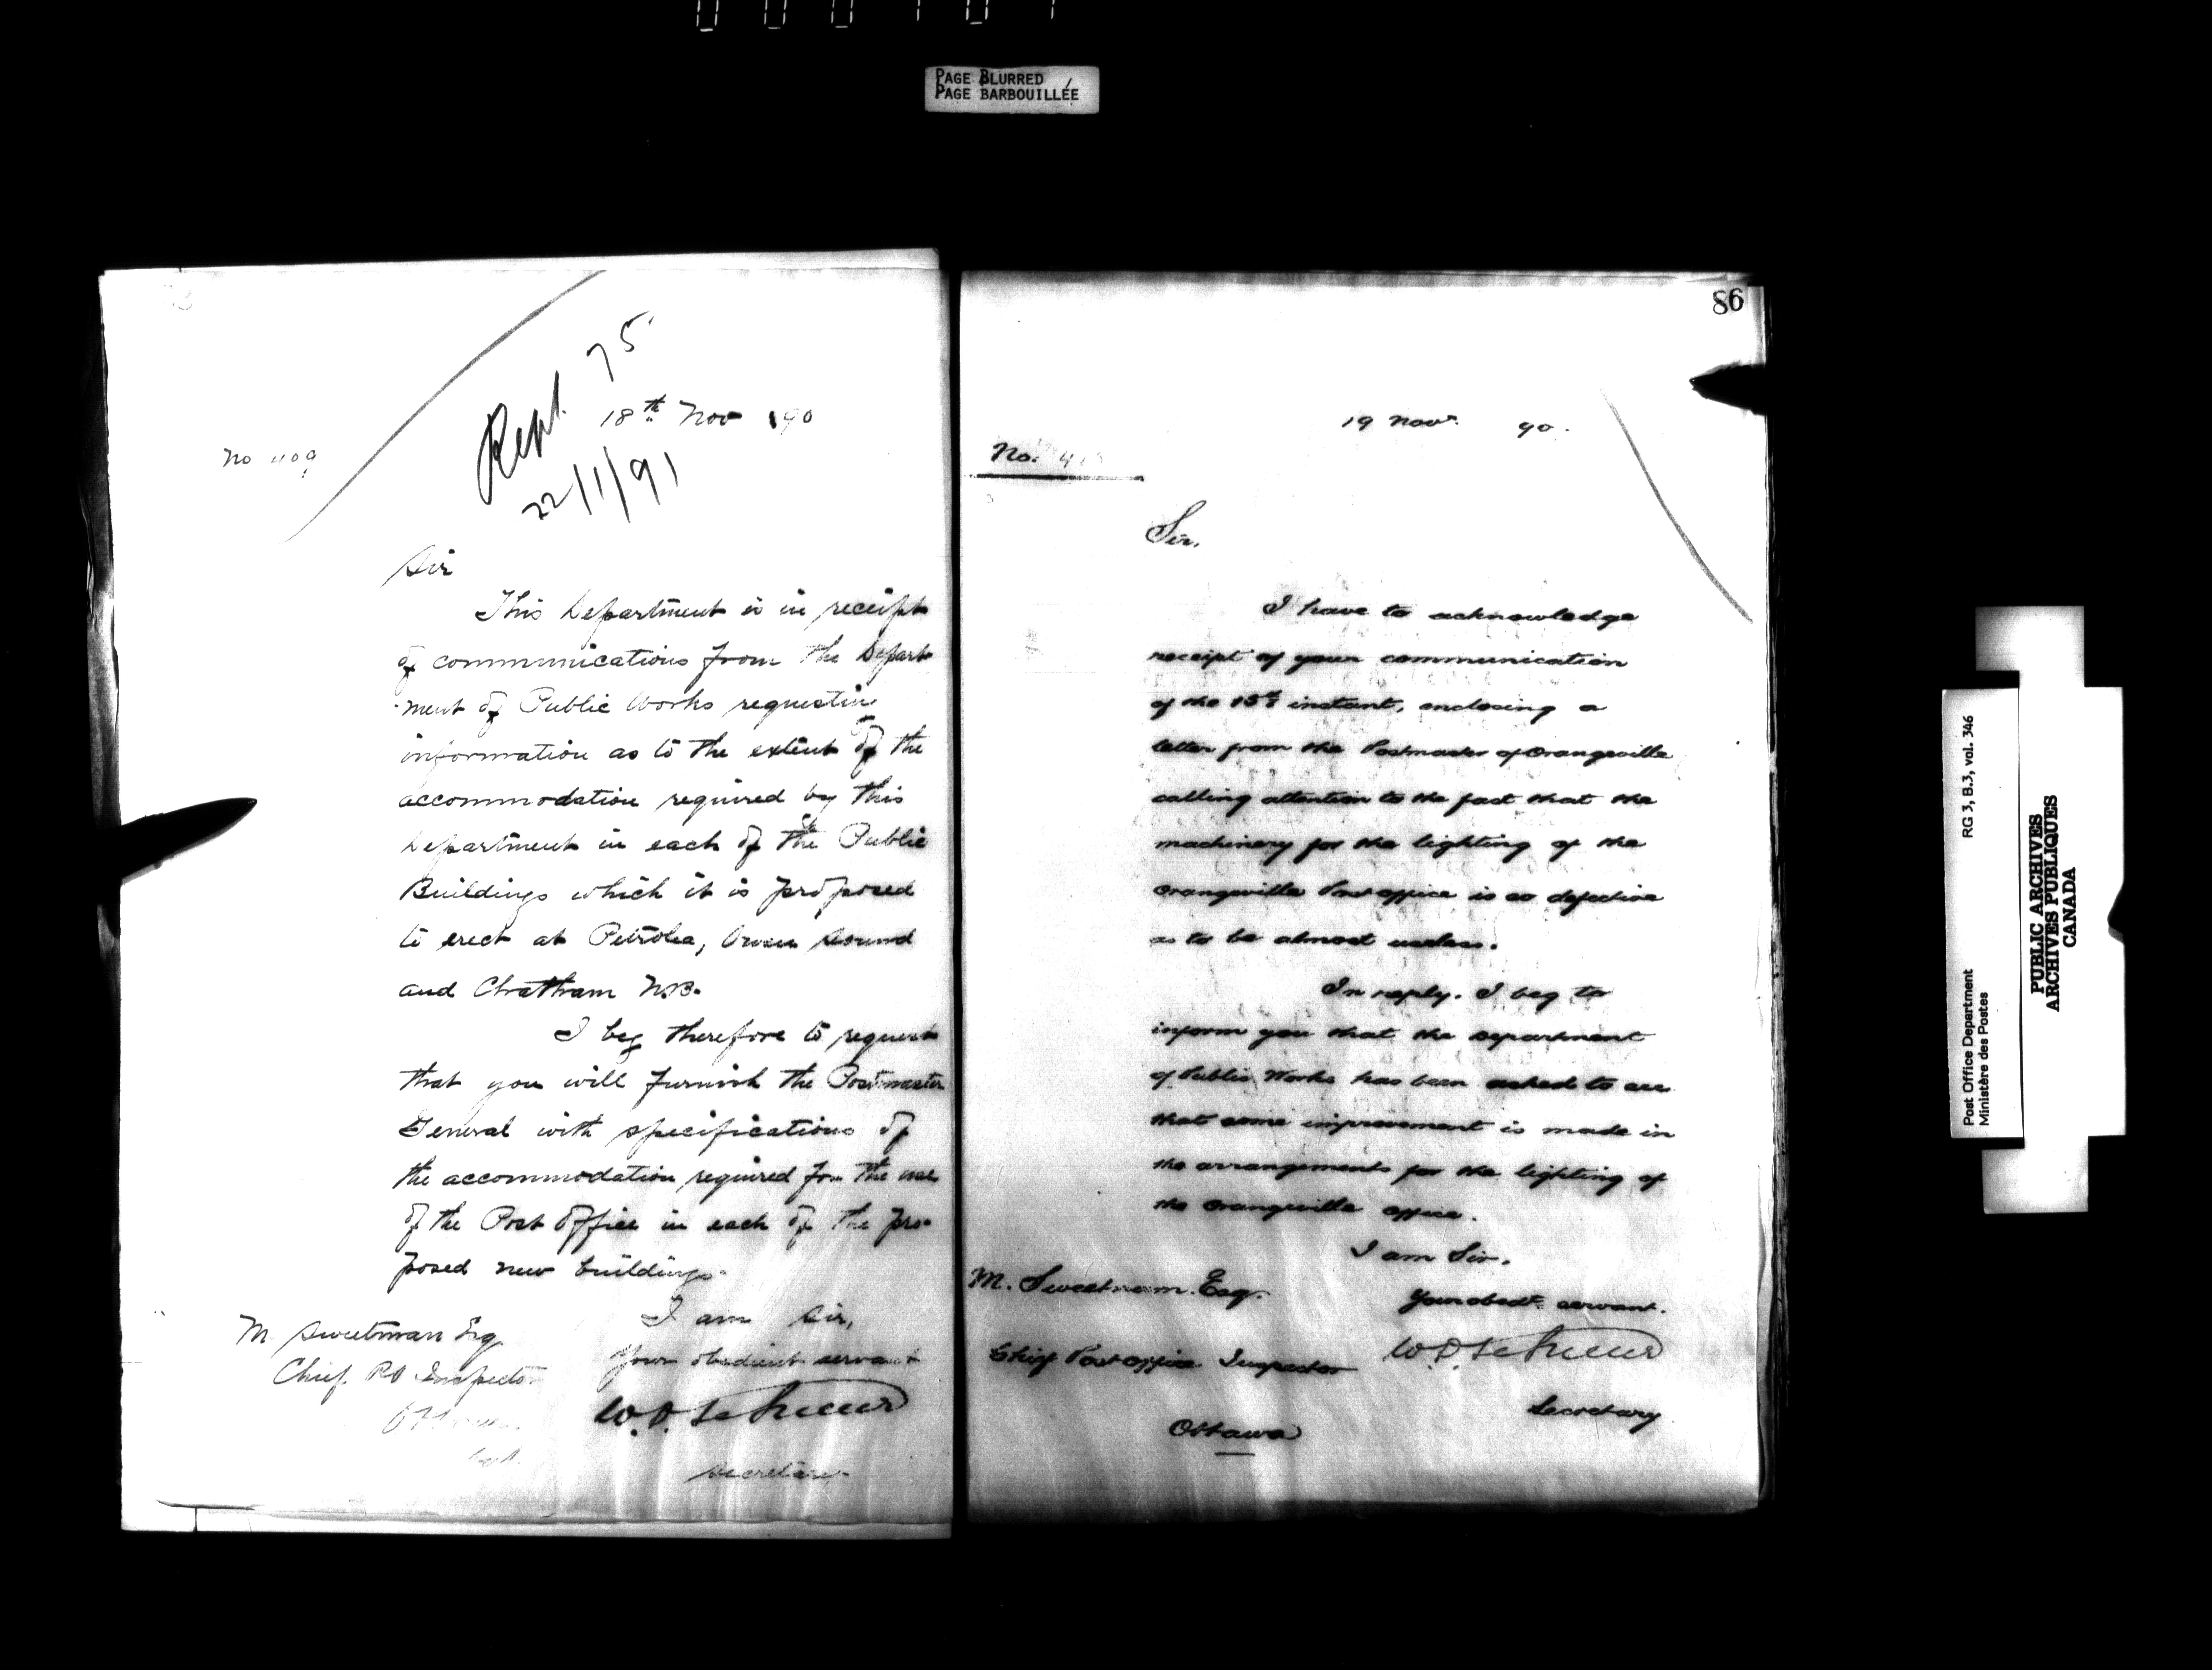 PAGE BLURRED
PAGE BARBOUILLÉE
Rept. 75
22/1/91
18th Nov 190
No 409
Sir
This Department is in receipt
of communications from the Depart
-ment of Public Works requesting
information as to the extent of the
accommodation required by this
Department in each of the Public
Buildings which it is proposed
to erect at Petrolea, Owen Sound
and Chatham N.B.
I beg therefore to request
that you will furnish the Postmaster
General with specifications of
the accommodation required for the use
of the Post Office in each of the pro-
posed new buildings.
I am Sir,
Your obedient servant
W.D. LeSueur
Secretary
M Sweetnam Esq
Chief P.O Inspector
Ottawa
86
19 Nov. 90.
No.
Sir.
I have to acknowledge
receipt of your communication
of the 15th instant, enclosing a
letter from the Postmaster of Orangeville
calling attention to the fact that the
machinery for the lighting of the
Orangeville Post office is so defective
as to be almost useless.
In reply. I beg to
inform you that the Department
of Public Works has been asked to see
that some improvement is made in
the arrangements for the lighting of
the Orangeville office.
I am Sir.
Your obedt. servant.
W.D. LeSueur
Secretary
M. Sweetnam. Esq.
Chief Post office Inspector
Ottawa
Post Office Department
Ministère des Postes
RG 3, B.3, vol. 346
PUBLIC ARCHIVES
ARCHIVES PUBLIQUES
CANADA